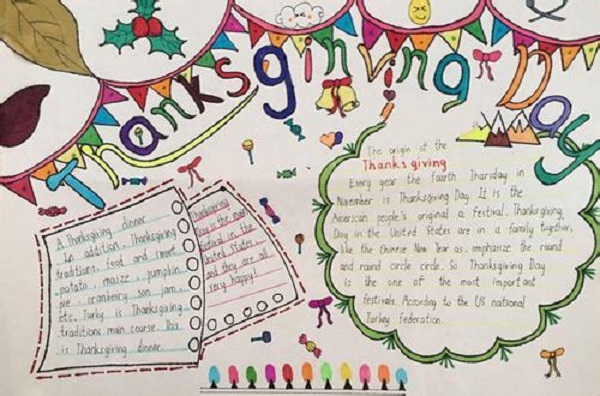 Thanksginving Day
A Thanksgiving dinner
In addition Thanksgiving
traditions food and smort
potato, maize, pumplin
pie, cranberry son jam.
etc. Turky is Thanksgiving
traditions main course. Dox
is Thanksgiving dinner.
Thanksgiving
Day is the main
festival in the
United States,
and they are all
very happy!
The origin of the
Thanksgiving
Every year the fourth Thursday in
November is Thanksgiving Day. It is the
American people's original a festival. Thanksgiving
Day in the United States are in a family together,
like the Chinese New Year as, emphasize the round
and round circle circle. So Thanksgiving Day
is the one of the most important
festivals. According to the US national
Turkey federation.